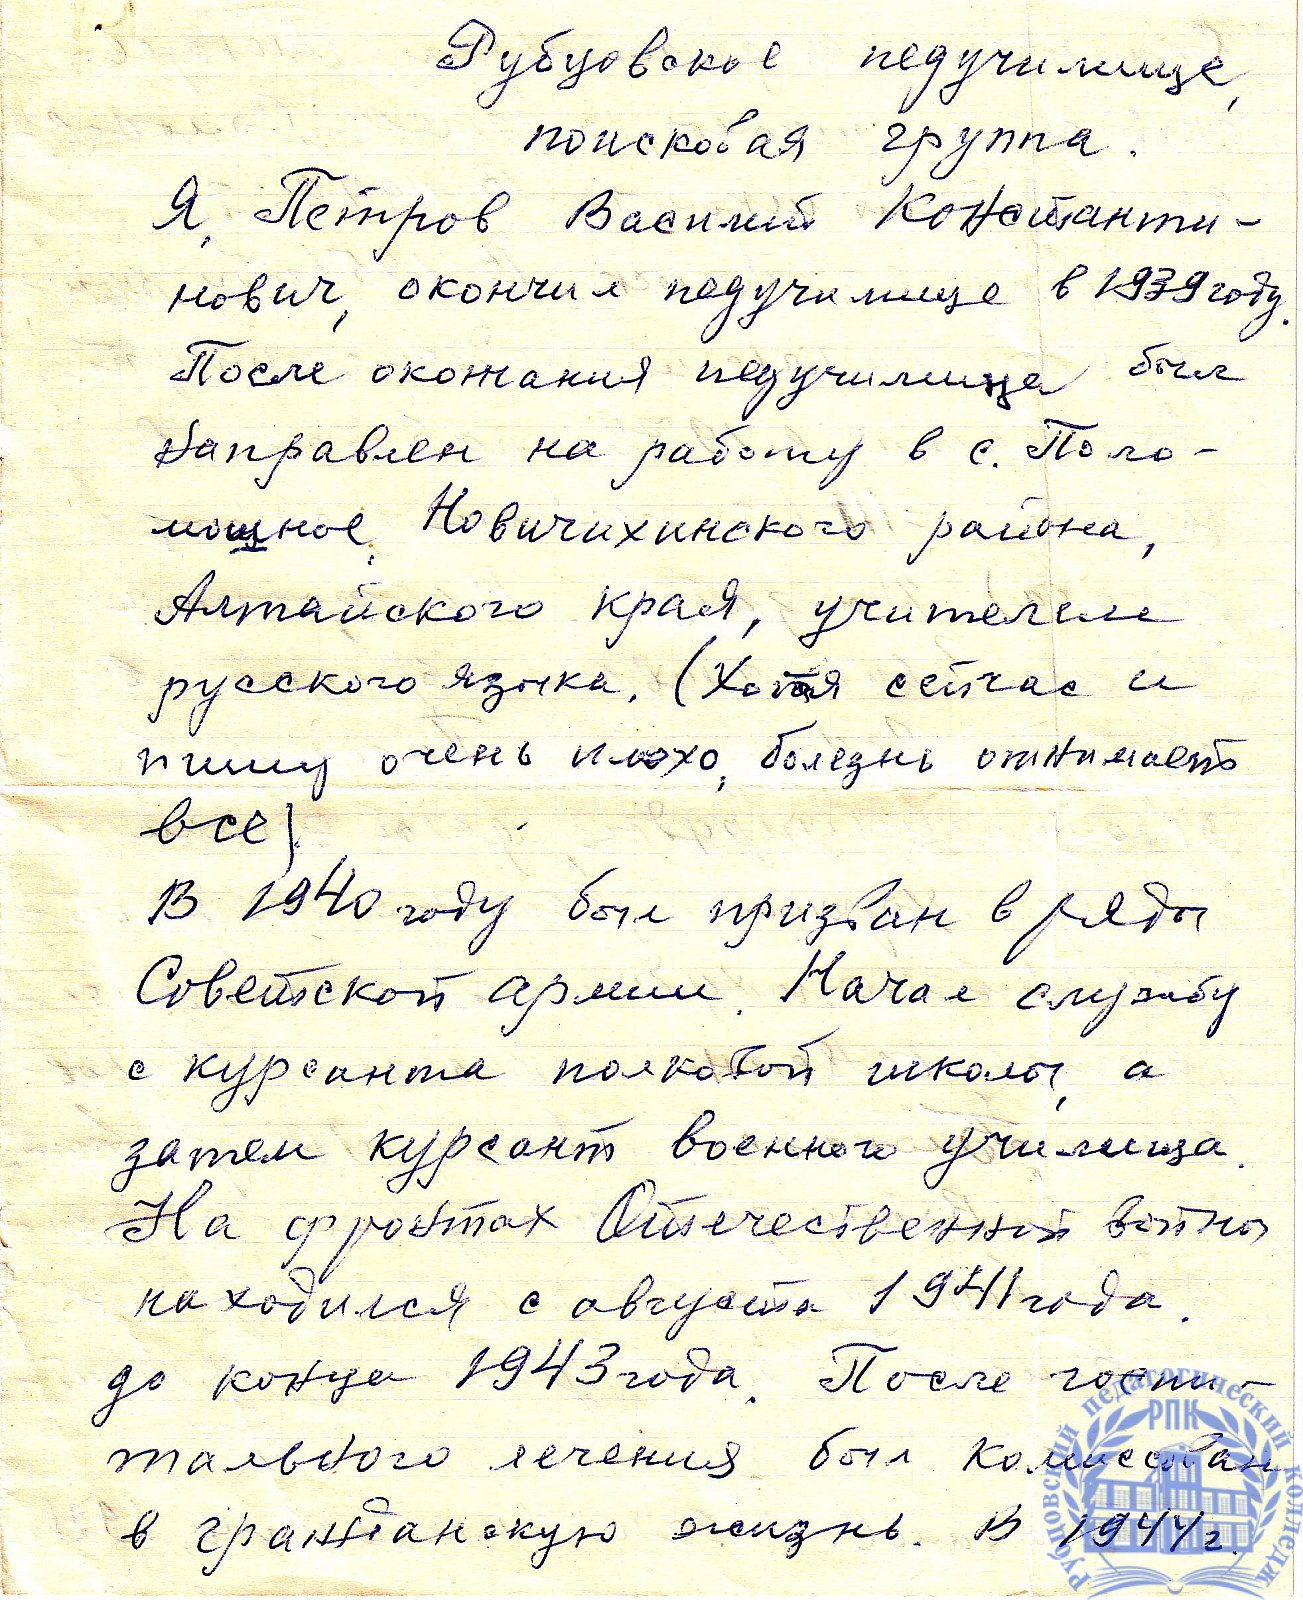 Рубцовское педучилище,
поисковая группа.
Я, Петров Василий Константи-
нович, окончил педучилище в 1939 году.
После окончания педучилища был
направлен на работу в с. Поло-
мошное, Новичихинского района,
Алтайского края, учителем
русского языка. (Хотя сейчас и
пишу очень плохо, болезнь отнимает
все).
В 1940 году был призван в ряды
Советской армии. Начал службу
с курсанта полковой школы, а
затем курсант военного училища.
На фронтах Отечественной войны
находился с августа 1941 года.
до конца 1943 года. После госпи-
тального лечения был комиссован
в гражданскую жизнь. В 1944 г.
Рубцовский педагогический колледж
РПК